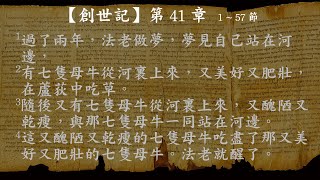 【創世記】第 41 章 1~57節
1過了兩年，法老做夢，夢見自己站在河
邊，
2有七隻母牛從河裏上來，又美好又肥壯，
在蘆荻中吃草。
3隨後又有七隻母牛從河裏上來，又醜陋又
乾瘦，與那七隻母牛一同站在河邊。
4這又醜陋又乾瘦的七隻母牛吃盡了那又美
好又肥壯的七隻母牛。法老就醒了。